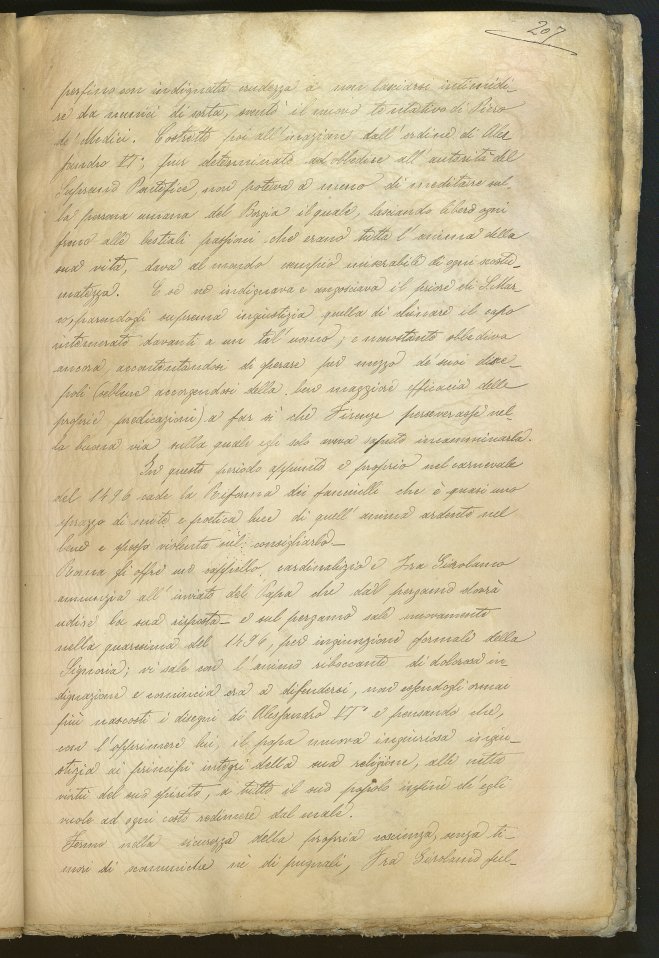 207
perfino con indignata crudezza a non lasciarsi intimidi-
re da nemici di sorta, sventò il nuovo tentativo di Piero
de' Medici. Costretto poi all'inazione dall'ordine di Ales
sandro VI°, pur determinato ad obbedire all'autorità del
Supremo Pontefice, non poteva a meno di meditare sul,
la persona umana del Borgia il quale, lasciando libero ogni
freno alle bestiali passioni che erano tutta l'anima della
sua vita, dava al mondo esempio miserabile di ogni scostu_
matezza. E se ne indignava e angosciava il priore di S. Mar
co, parendogli suprema ingiustizia quella di chinare il capo
intemerato davanti a un tal uomo; e nonostante obbediva
ancora, accontentandosi di operare per mezzo de' suoi disce-
poli (sebbene accorgendosi della ben maggiore efficacia delle
proprie predicazioni) a far sì che Firenze perseverasse nel-
la buona via sulla quale egli solo aveva saputo incamminarla.
In questo periodo appunto e proprio nel carnevale
del 1496 cade la Riforma dei fanciulli che è quasi uno
sprazzo di mite e poetica luce di quell'anima ardente nel
bene e spesso violenta nel consigliarlo_
Roma gli offre un cappello cardinalizio e Fra Girolamo
annunzia all'inviato del Papa che dal pergamo dovrà
udire la sua risposta_ e sul pergamo sale nuovamente
nella quaresima del 1496, per ingiunzione formale della
Signoria; vi sale con l'animo riboccante di dolorosa in
dignazione e comincia ora a difendersi, non essendogli ormai
più nascosti i disegni di Alessandro VI° e pensando che,
con l'opprimere lui, il papa muova ingiuriosa ingiu_
stizia ai principi integri della sua religione, alle nette
virtù del suo spirito, a tutto il suo popolo infine ch'egli
vuole ad ogni costo redimere dal male.
Fermo nella sicurezza della propria coscienza, senza ti-
mori di scomuniche nè di pugnali, Fra Girolamo ful-